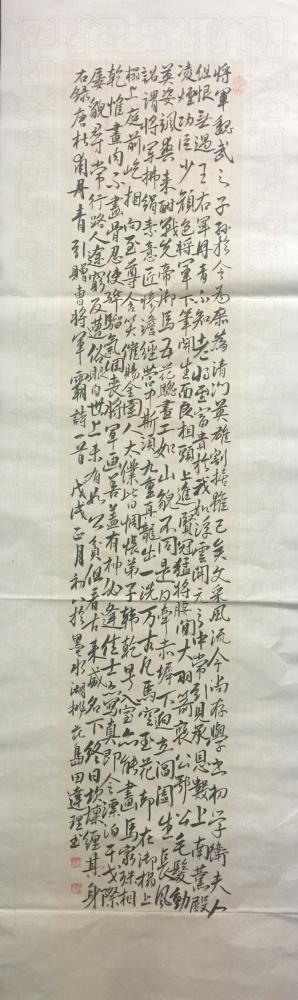 將軍魏武之子孫於今為庶為清門英雄割據雖已矣文采風流今尚存學書初學衛夫人
但恨無過王右軍丹青不知老將至富貴於我如浮雲開元之中常引見承恩數上南薰殿
凌煙功臣少顏色將軍下筆開生面良相頭上進賢冠猛將腰間大羽箭褒公鄂公毛髮動
英姿颯爽來酣戰先帝御馬五花驄畫工如山貌不同是日牽來赤墀下迥立閶闔生長風
詔謂將軍拂絹素意匠慘澹經營中斯須九重真龍出一洗萬古凡馬空玉花却在御榻上
榻上庭前屹相向至尊含笑催賜金圉人太僕皆惆悵弟子韓乾早入室亦能畫馬窮殊相
乾惟畫肉不畫骨忍使驊騮氣凋喪將軍画善蓋有神必逢佳士亦寫真即今漂泊干戈際
屢貌尋常行路人途窮反遭俗眼白世上未有如公貧但看古來盛名下終日坎壈纏其身
右錄唐杜甫丹青引贈曹將軍霸詩一首戊戌正月初八於墨水湖桃花島田達理書